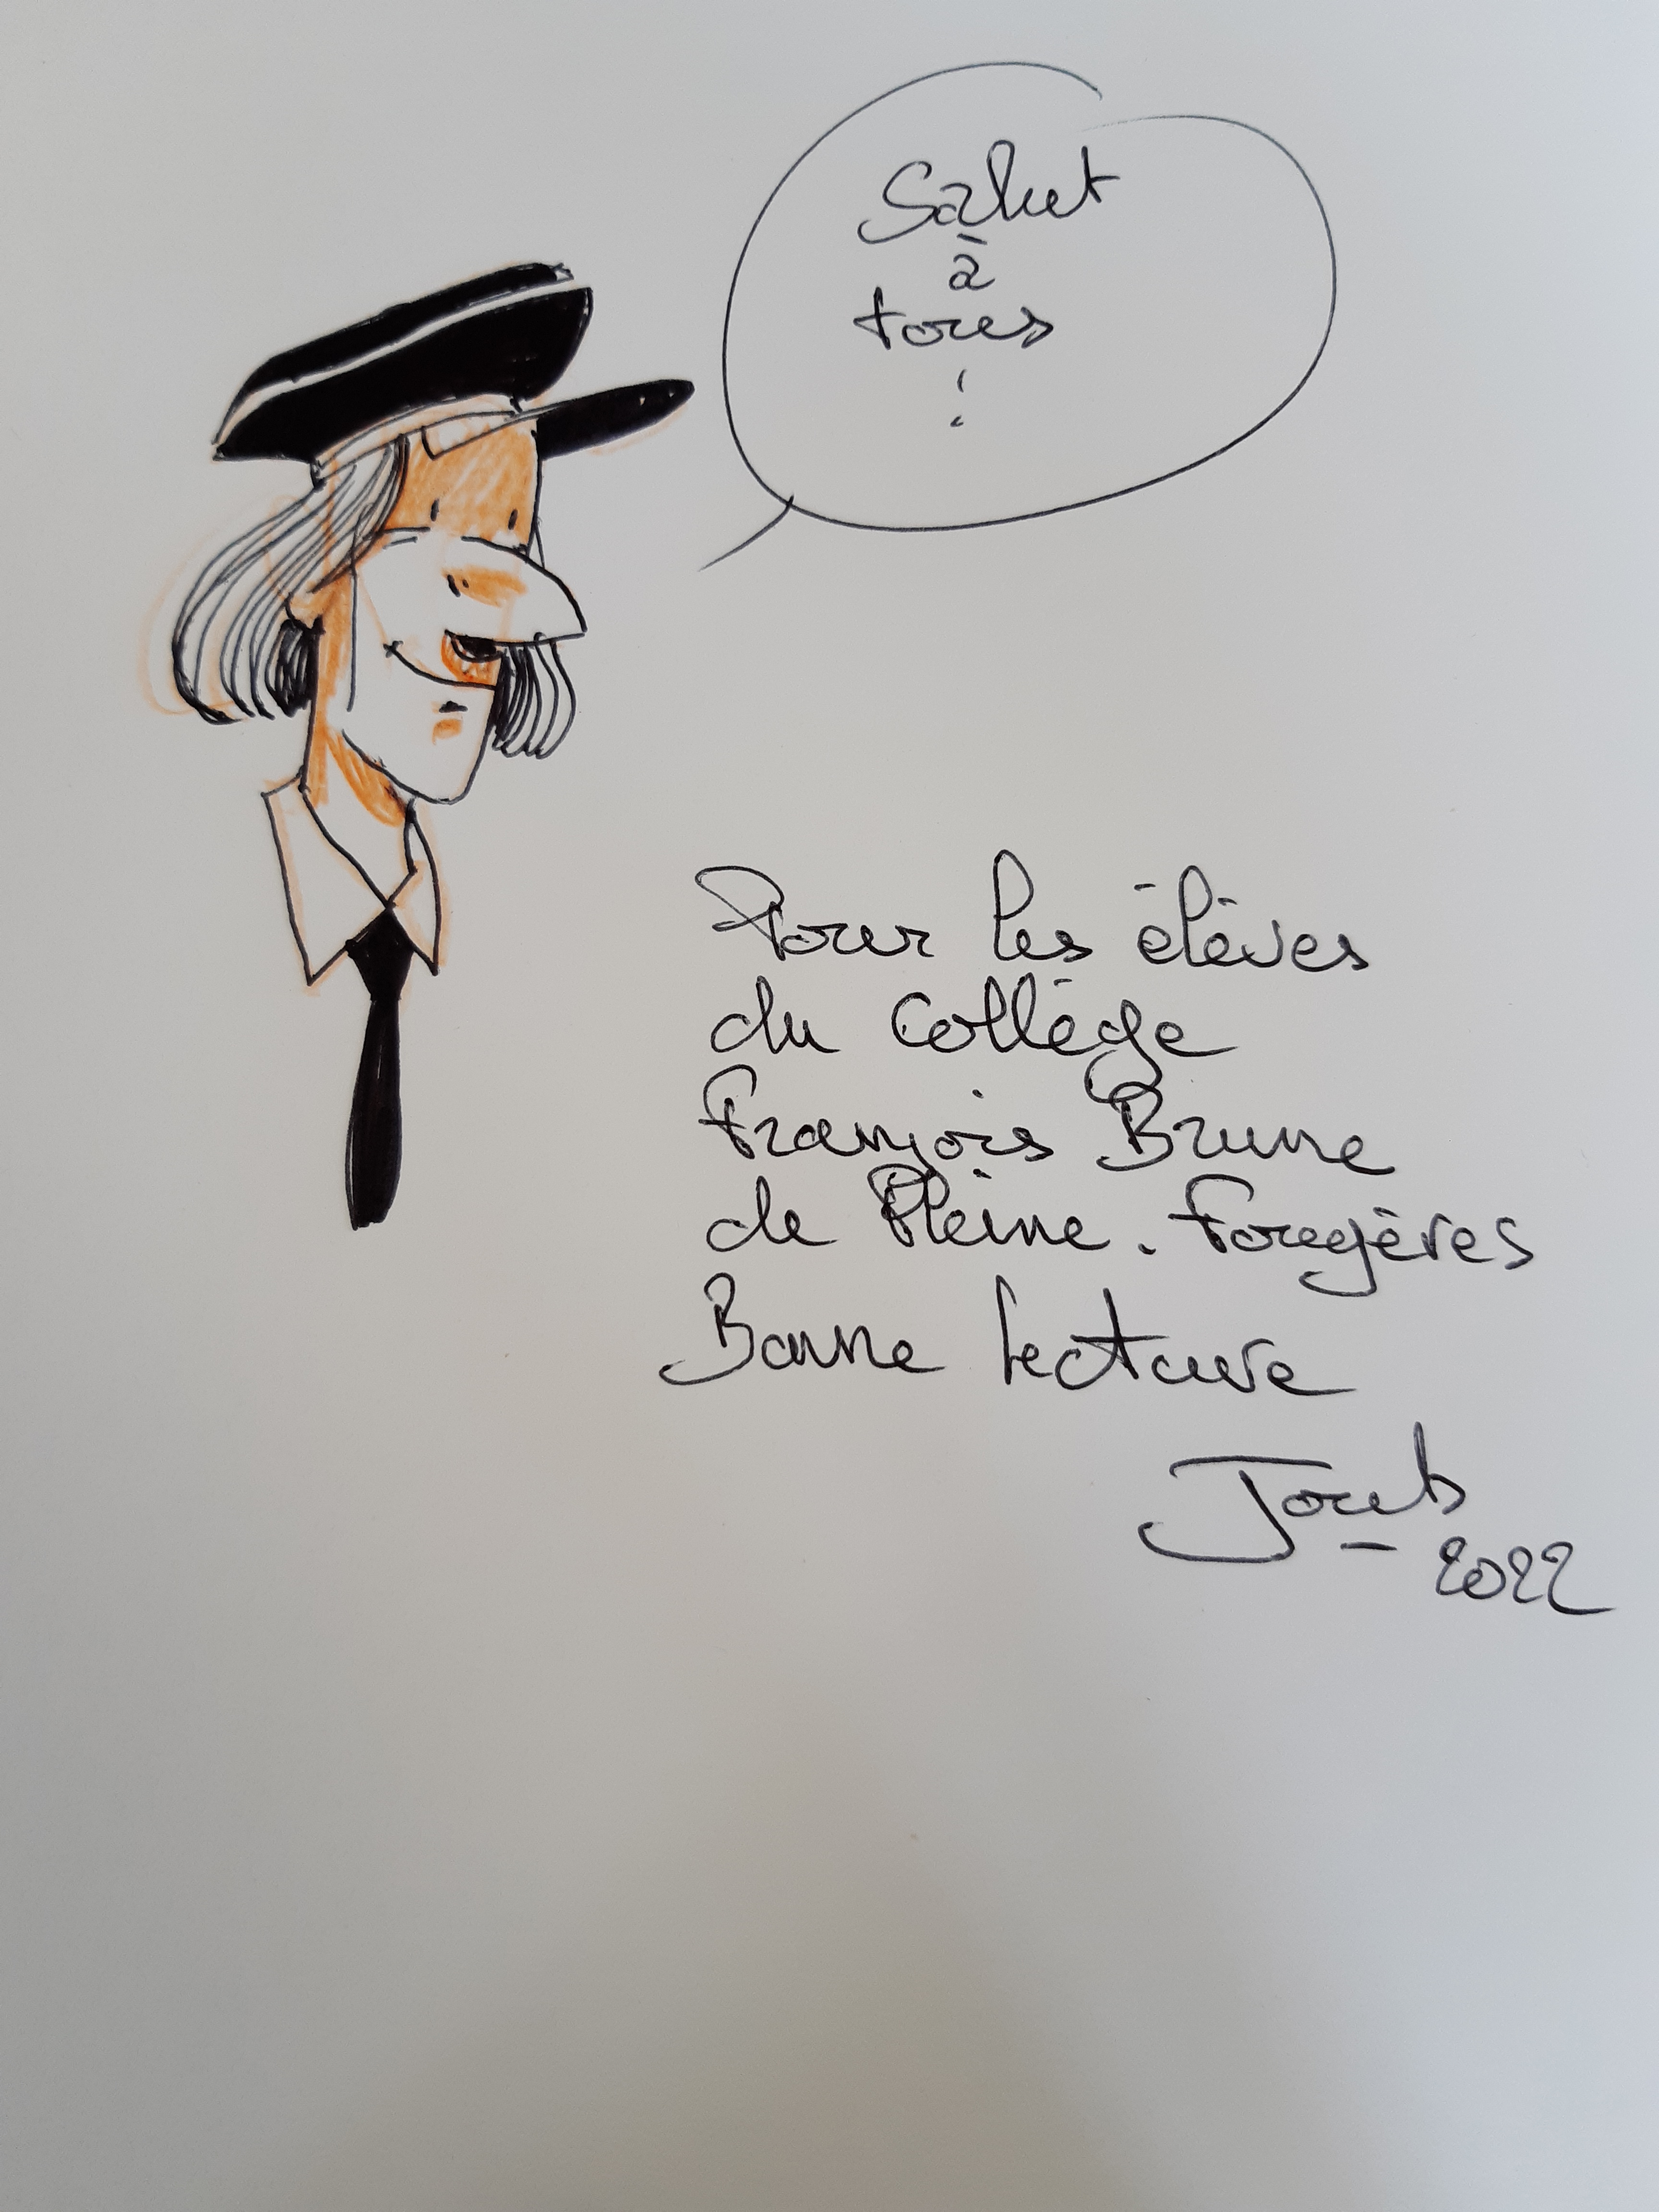 Salut
à
tous
!
Pour les élèves
du Collège
François Brune
de Pleine-Fougères
Bonne lecture
Joub
2022